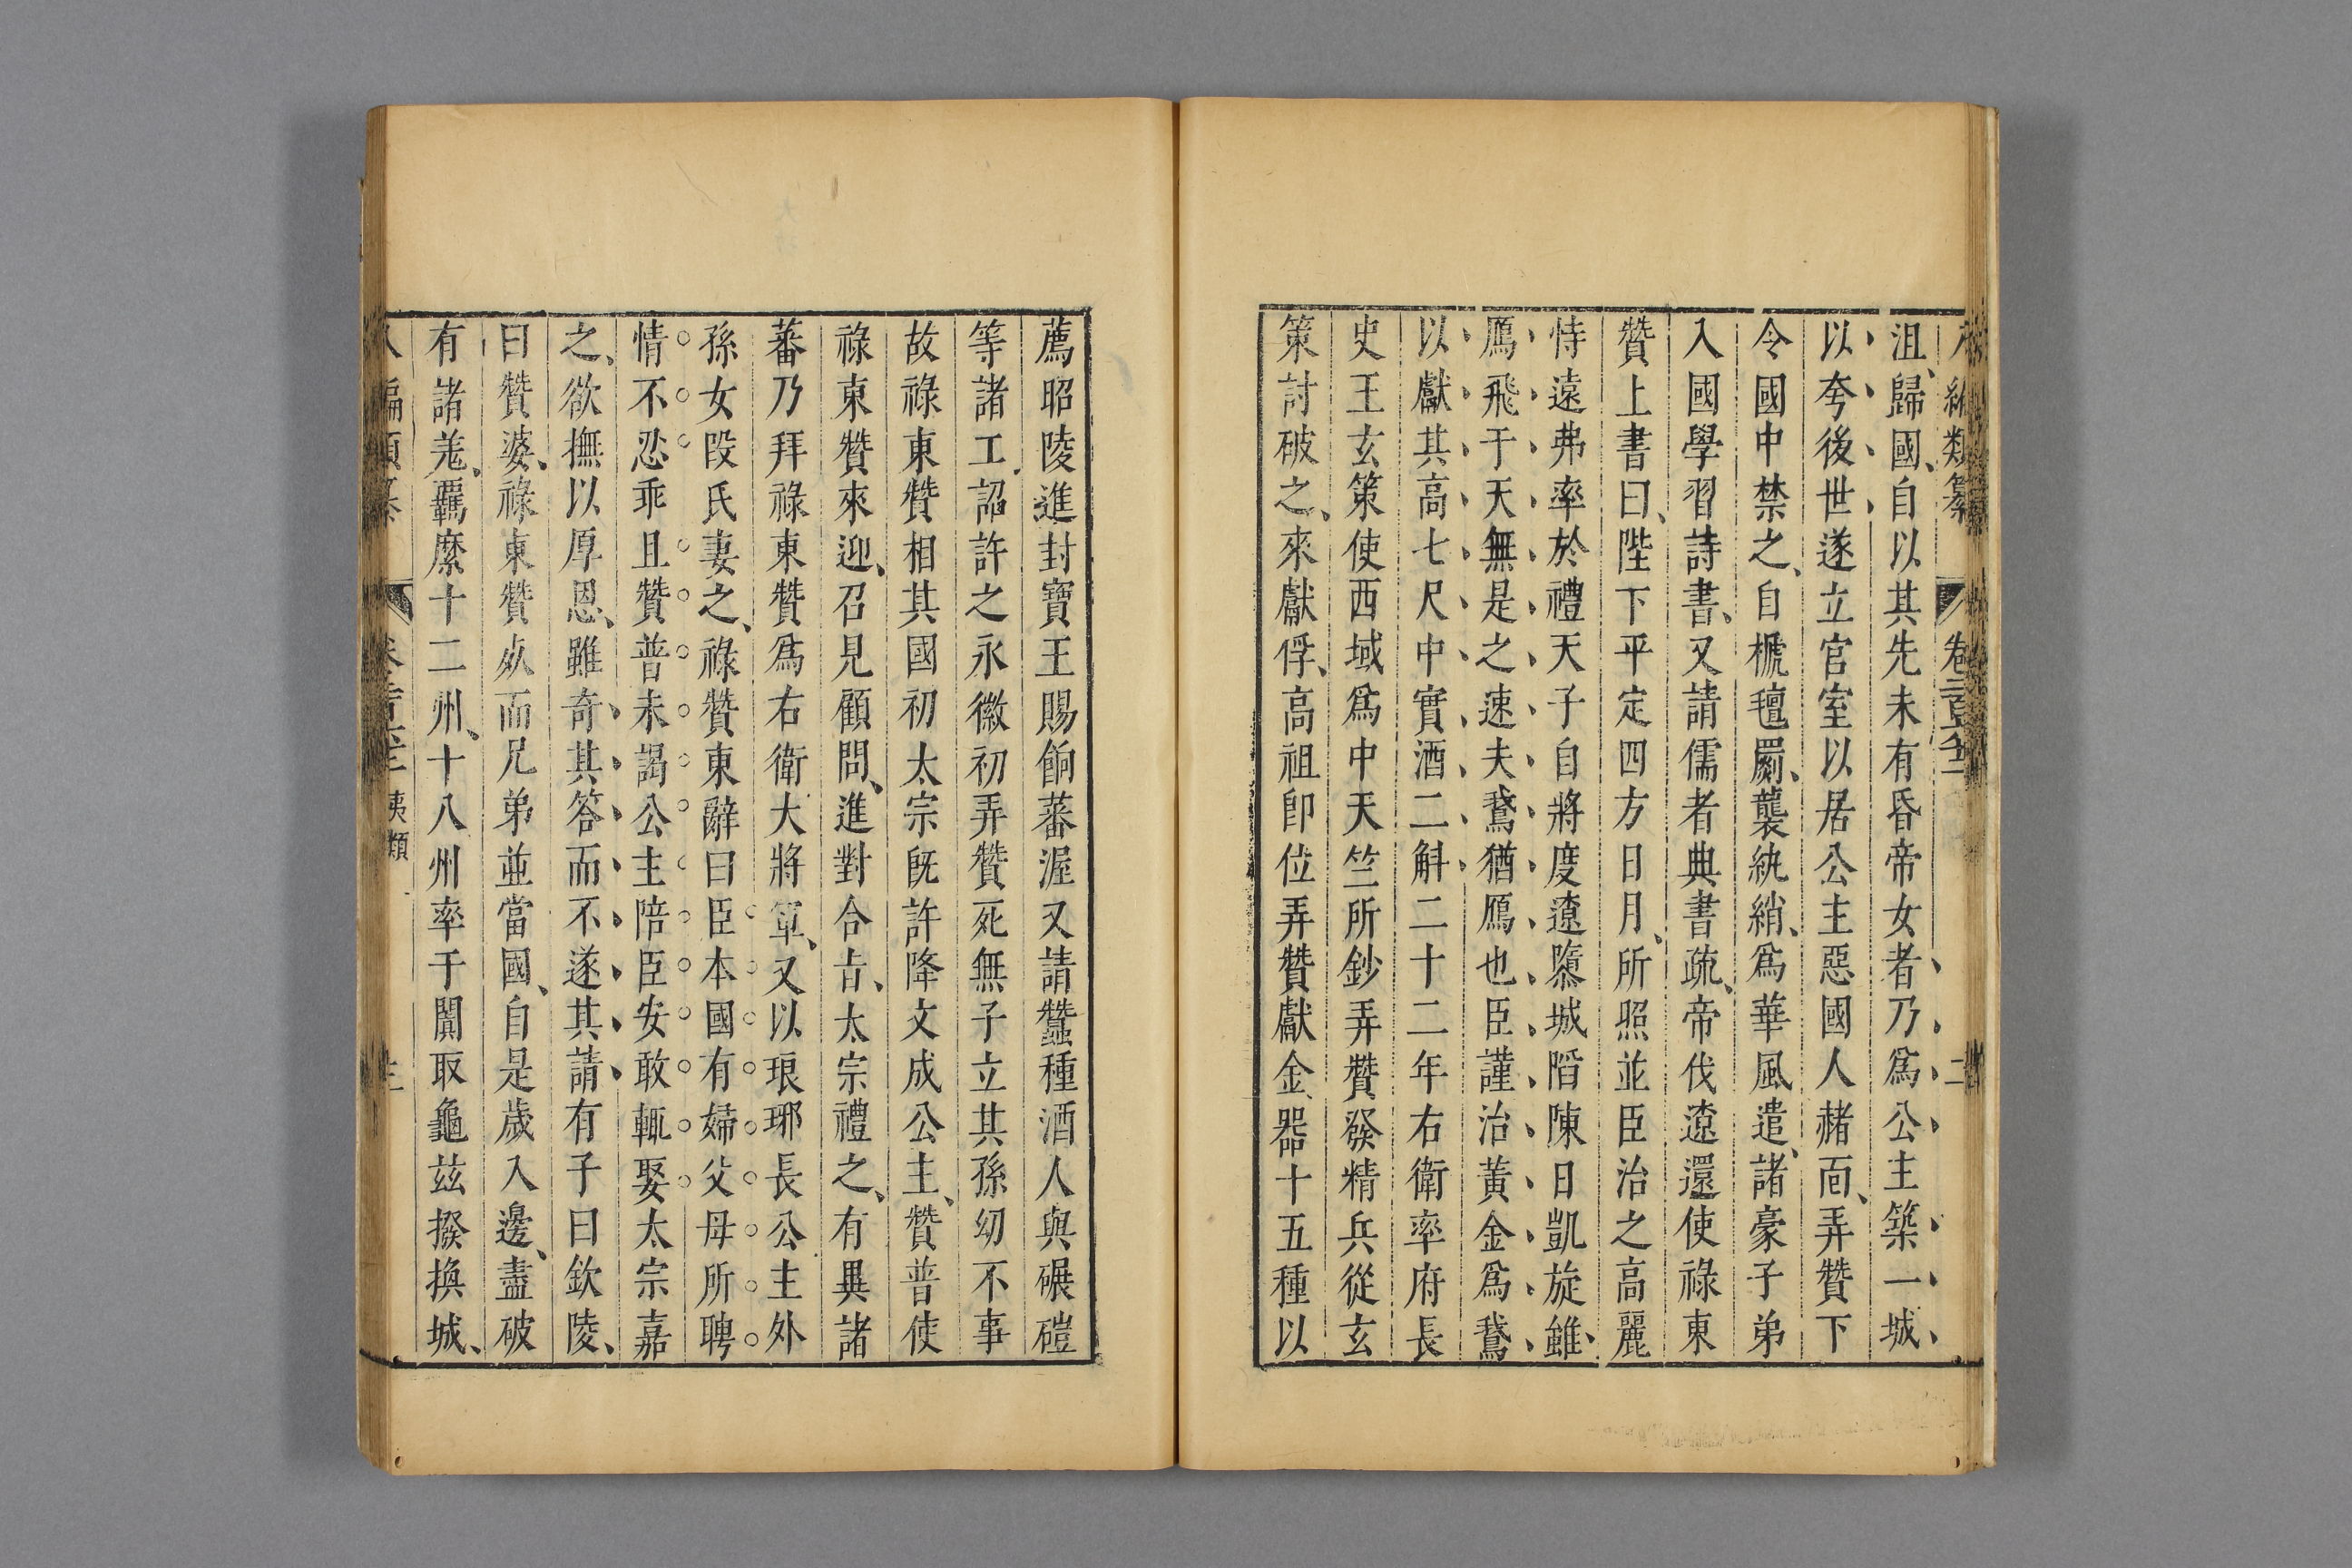 沮、歸國、自以其先未有昏帝女者乃爲公主築一城
以夸後世遂立官室以居公主惡國人赭面、弄贊下
令國中禁之、自褫氊罽、襲紈綃、爲華風遣、諸豪子弟
入國學習詩書、又請儒者典書疏、帝伐遼還使祿東
贊上書曰、陛下平定四方日月、所照並臣治之高麗
恃遠弗率於禮天子自將度遼隳城陷陳日凱旋雖
鴈飛于天無是之速夫鵞猶鴈也臣謹治黃金爲鵞
以獻其高七尺中實酒二斛二十二年右衛率府長
史王玄策使西域爲中天竺所鈔弄贊發精兵從玄
策討破之、來獻俘、高祖卽位弄贊獻金、器十五種以
薦昭陵進封寶王賜餉蕃渥又請蠶種酒人與碾磑
等諸工、詔許之永徽初弄贊死無子立其孫幼不事
故祿東贊相其國初太宗旣許降文成公主、贊普使
祿東贊來迎、召見顧問、進對合旨、太宗禮之、有異諸
蕃乃拜祿東贊爲右衛大將軍、又以琅琊長公主外
孫女段氏妻之、祿贊東辭曰臣本國有婦父母所聘
情不忍乖且贊普未謁公主陪臣安敢輒娶太宗嘉
之、欲撫以厚恩、雖奇其答而不遂其請有子曰欽陵、
曰贊婆、祿東贊死而兄弟並當國、自是歲入邊、盡破
有諸羌、羈縻十二州、十八州率于闐取龜兹撥換城、